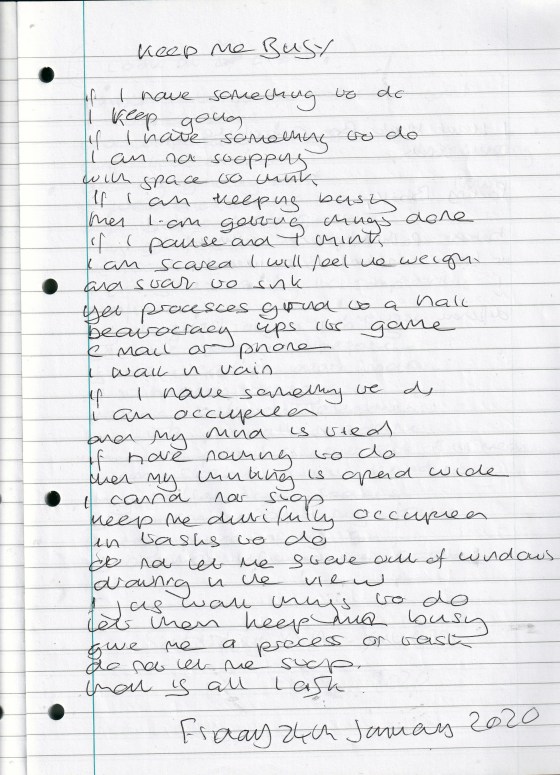 Keep me Busy
if I have something to do
I keep going
if I have something to do
I am not stopping
with space to think
If I am keeping busy
then I am getting things done
if I pause and I think
I am scared I will feel the weight
and start to sink
yet processes grind to a halt
beaurocracy ups its game
e mail or phone
I wait in vain
if I have something to do
I am occupied
and my mind is tied
if have nothing to do
then my thinking is opend wide
I cannot not stop
keep me dutifully occupied
in tasks to do
do not let me stare out of windows
drawing in the view
I just want things to do
lets them keep me busy
give me a process or task
do not let me stop.
that is all I ask
Friday 24th January 2020